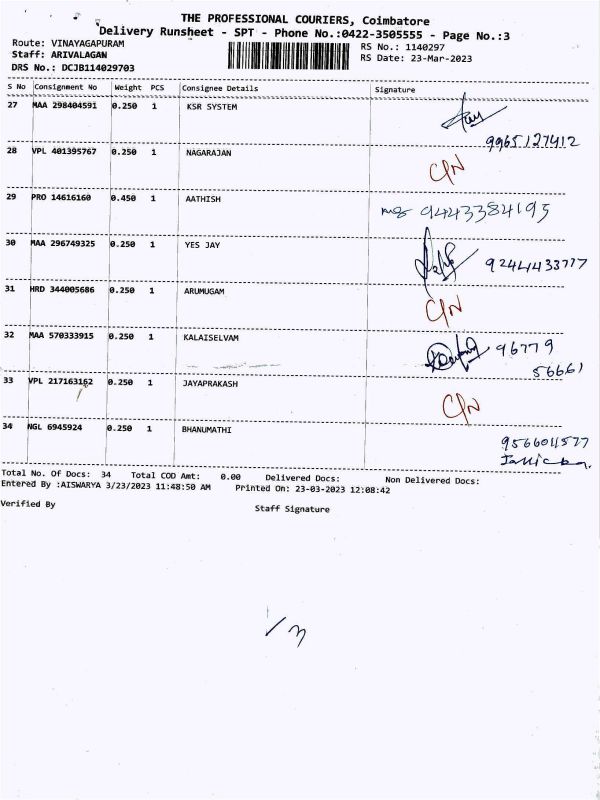 THE PROFESSIONAL COURIERS, Coimbatore
Delivery Runsheet - SPT - Phone No.:0422-3505555 - Page No.:3
Route: VINAYAGAPURAM
RS No.: 1140297
Staff: ARIVALAGAN
RS Date: 23-Mar-2023
DRS No.: DCJB114029703
S No Consignment No Weight PCS Consignee Details Signature
27 MAA 298404591 0.250 1 KSR SYSTEM
9965127412
28 VPL 401395767 0.250 1 NAGARAJAN C/N
29 PRO 14616160 0.450 1 AATHISH 9443384195
30 MAA 296749325 0.250 1 YES JAY 9244433777
31 HRD 344005686 0.250 1 ARUMUGAM C/N
32 MAA 570333915 0.250 1 KALAISELVAM 96779
56661
33 VPL 217163162 0.250 1 JAYAPRAKASH C/N
34 NGL 6945924 0.250 1 BHANUMATHI
Total No. Of Docs: 34 Total COD Amt: 0.00 Delivered Docs: Non Delivered Docs:
Entered By :AISWARYA 3/23/2023 11:48:50 AM Printed On: 23-03-2023 12:08:42
Verified By Staff Signature